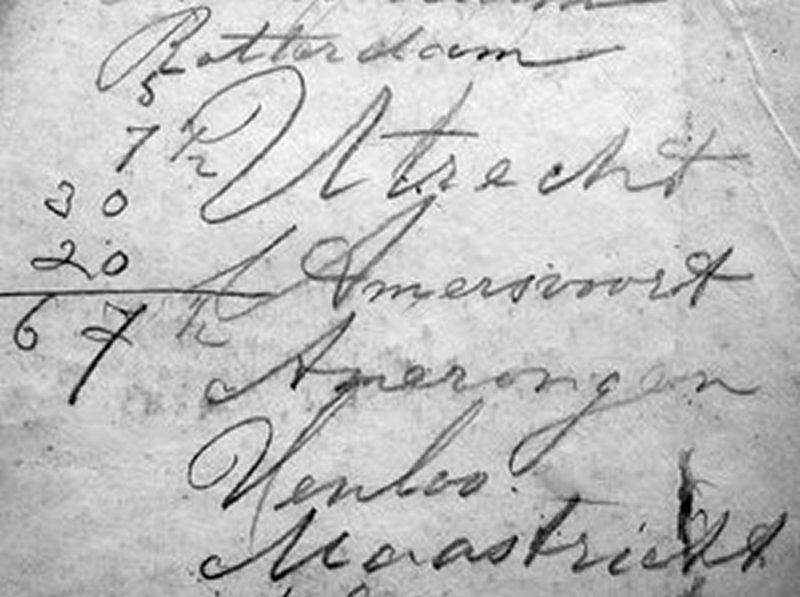 Rotterdam
5
7 1/2 Utrecht
30
20 Amersvoort
67 1/2
Amerongen
Venloo
Maastricht